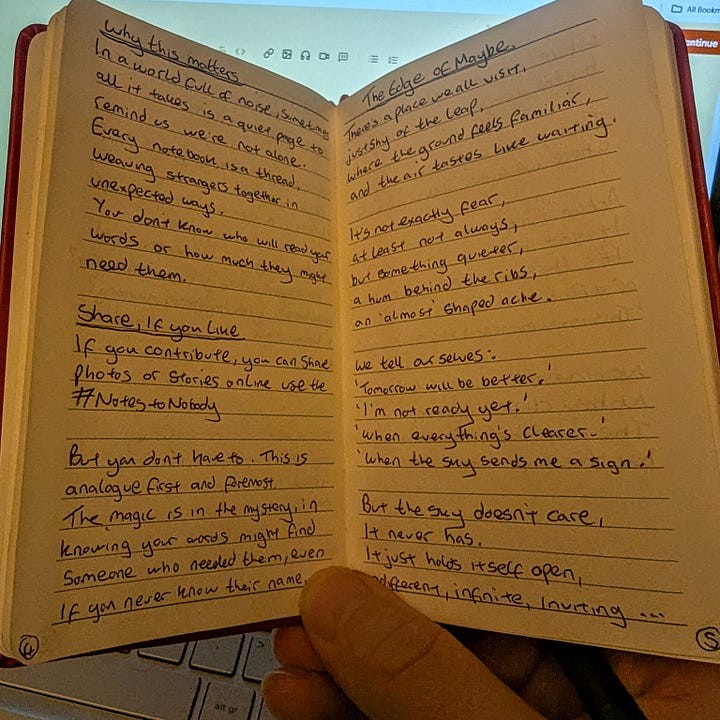 Why this matters
In a world full of noise, sometimes
all it takes is a quiet page to
remind us we're not alone.
Every notebook is a thread,
weaving strangers together in
unexpected ways.
You don't know who will read your
words or how much they might
need them.
Share, If you like
If you contribute, you can share
photos or stories online use the
#NotestoNobody
But you don't have to. This is
analogue first and foremost.
The magic is in the mystery, in
knowing your words might find
Someone who needed them, even
If you never know their name.
4
The Edge of Maybe.
There's a place we all visit,
just shy of the leap,
where the ground feels familiar,
and the air tastes like waiting.
It's not exactly fear,
at least not always,
but something quieter,
a hum behind the ribs,
an 'almost' shaped ache.
we tell ourselves:
'Tomorrow will be better.'
'I'm not ready yet.'
'when everything's clearer.'
'when the sky sends me a sign.'
But the sky doesn't care,
It never has.
It just holds itself open,
indifferent, infinite, inviting ...
5
All Bookm
ontinue
alt gr